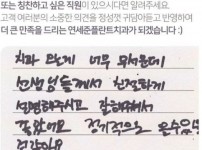 또는 칭찬하고 싶은 직원이 있으시다면 알려주세요.
고객 여러분의 소중한 의견을 정성껏 귀담아듣고 반영하여
더 큰 만족을 드리는 연세준플란트치과가 되겠습니다 :)
치과 오는게 너무 무서운데
선생님들께서 친절하게
설명해주시고 잘해주셔서
좋았어요 정기적으로 올수있을
것같아요